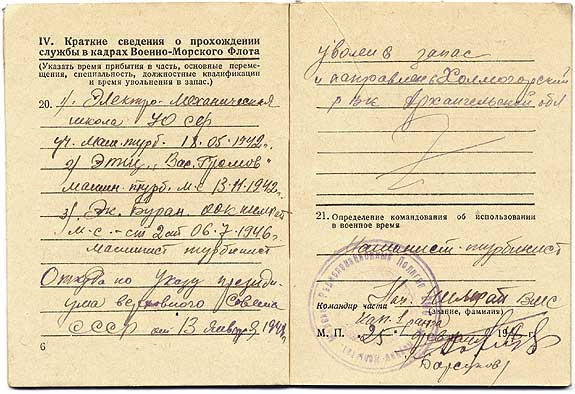 IV. Краткие сведения о прохождении
службы в кадрах Военно-Морского Флота
(Указать время прибытия в часть, основные переме-
щения, специальность, должностные квалификации
и время увольнения в запас.)
20. 1) Электро-Механическая
школа
уч. маш. турб. 18.05.1942г.
2) Вас. Громов"
машин. турб. м-с 13.11.1942г.
3) Эк. Буран.
м-с 06.7.1946г.
машинист турбинист
Откуда по Указу президи-
ума верховного Совета
СССР от 13 Января 194
6
уволен в запас
и направлен в Холмогорский
РВК Архангельской обл
21. Определение командования об использовании
в военное время
машинист-турбинист
Нач. ВМС
Командир части кап. 1 ранга
(звание, фамилия)
М. П. 25 февраля 194